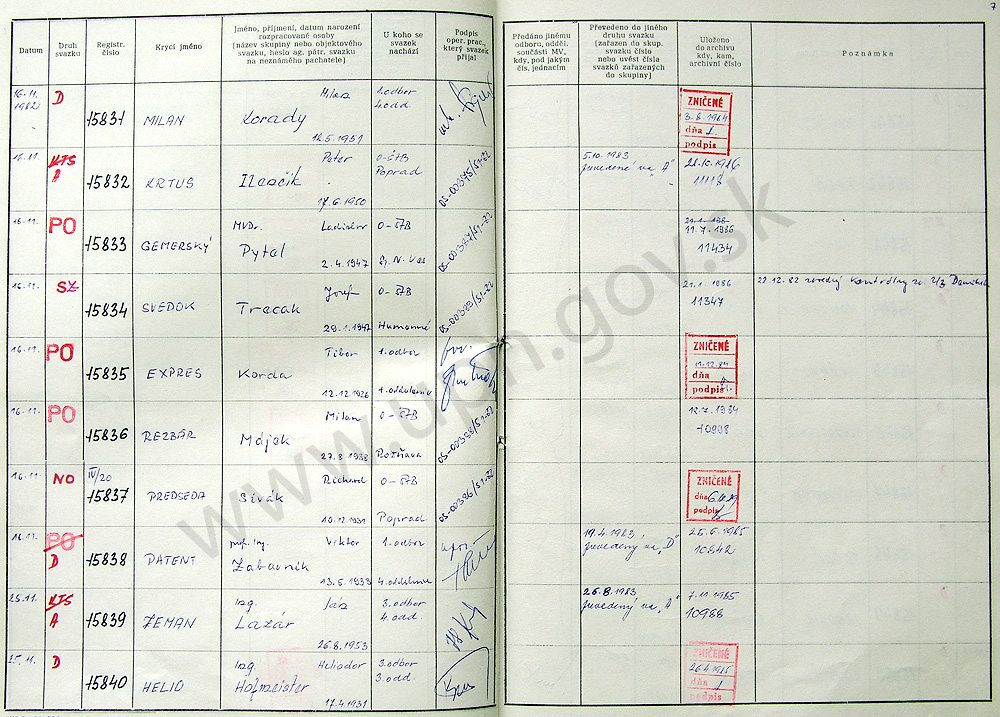 7
Datum
Druh svazku
Registr. číslo
Krycí jméno
Jméno, příjmení, datum narození
rozpracované osoby
(název skupiny nebo objektového
svazku, heslo ag. pátr. svazku
na neznámého pachatele)
U koho se
svazek
nachází
Podpis
oper. prac.,
který svazek
přijal
Předáno jinému
odboru, odděl.
součásti MV,
kdy, pod jakým
čís. jednacím
Převedeno do jiného
druhu svazku
(zařazen do skup.
svazku číslo
nebo uvést čísla
svazků zařazených
do skupiny)
Uloženo
do archivu
kdy, kam,
archivní číslo
Poznámka
16.11. 1982 D 15831 MILAN Milan Korady 12.5.1951 1.odbor 4.odd. ZNIČENÉ 3.8.1984 dňa podpis
16.11. KTS A 15832 KRTUS Peter 17.6.1950 O-ŠTB Poprad OS-00375/51-82 5.10.1983 prevedené na "A" 28.10.1986 11118
16.11. PO 15833 GEMERSKÝ MVDr. Ladislav Pytal 2.4.1947 O-ŠTB Sp. N. Ves 11.7.1986 11434
16.11. 15834 SVEDOK Jozef Trecak 29.1.1947 O-ŠTB Humenné 21.1.1986 11347 22.12.82
16.11. PO 15835 EXPRES Tibor Korda 12.12.1926 1.odbor 4.oddelenie ZNIČENÉ dňa podpis
16.11. PO 15836 REZBÁR Milan Májek 27.8.1938 O-ŠTB Rožňava 12.7.1984 10998
16.11. NO IV/20 15837 PREDSEDA Richard Sivák 10.12.1931 O-ŠTB Poprad OS-00386/51-82 ZNIČENÉ dňa podpis
16.11. PO D 15838 PATENT prof. ing. Viktor Zabavník 13.5.1933 1.odbor 4.oddelenie 19.4.1983 prevedený na "D" 25.6.1985 10842
25.11. KTS A 15839 ZEMAN Ing. Ján Lazár 26.8.1953 3.odbor 4.odd. 26.8.1983 prevedený na "A" 7.11.1985 10988
25.11. D 15840 HELIO Ing. Heliodor Hofmeister 17.4.1931 3.odbor 3.odd. ZNIČENÉ 26.4.1985 dňa podpis
www.upn.gov.sk